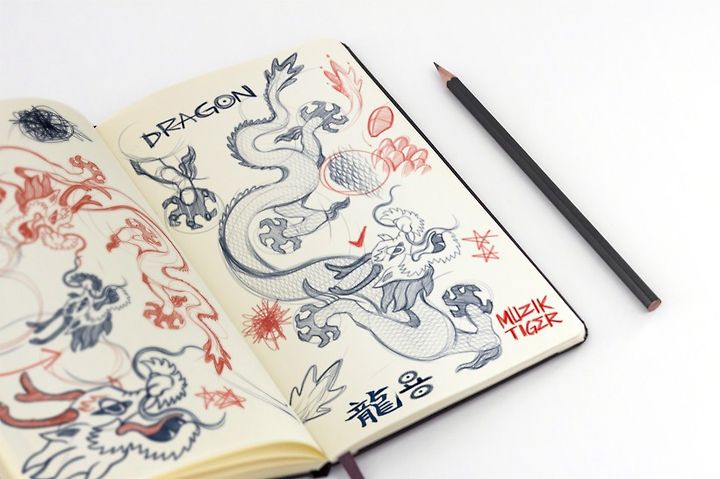 DRAGON
MUZIK
TIGER
龍용